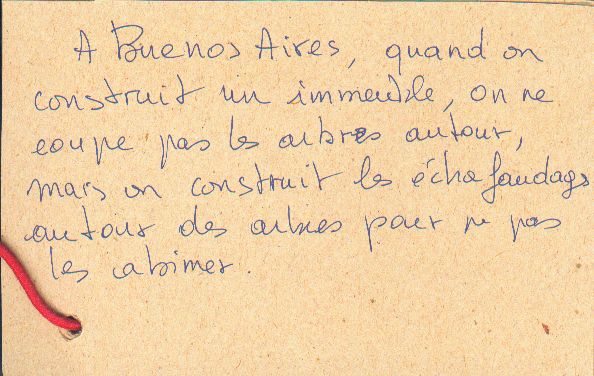 A Buenos Aires, quand on
construit un immeuble, on ne
coupe pas les arbres autour,
mais on construit les échafaudages
autour des arbres pour ne pas
les abimer.